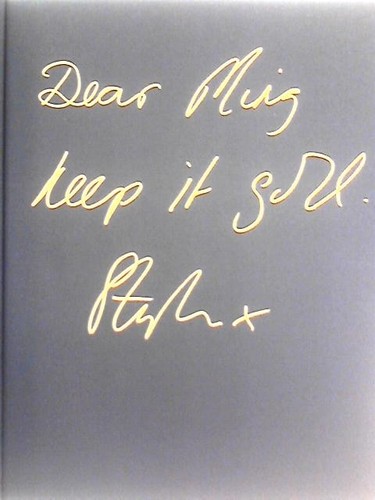 Dear Ming
keep it gold.
Stephen x